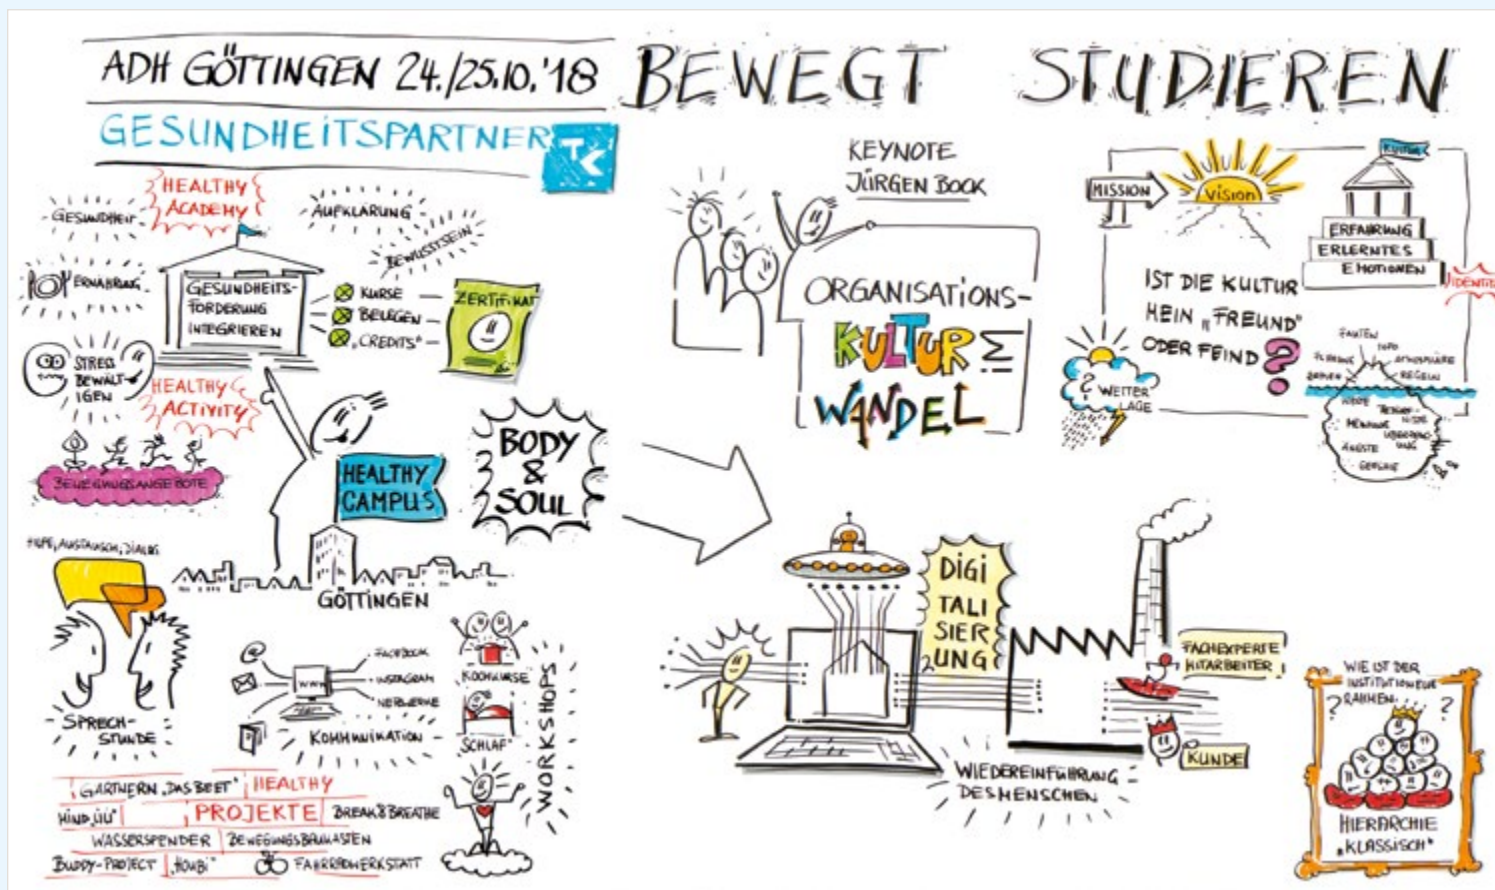 ADH GÖTTINGEN 24./25.10.'18
BEWEGT STUDIEREN
GESUNDHEITSPARTNER
TK
HEALTHY
ACADEMY
GESUNDHEIT
AUFKLÄRUNG
BEWUSSTSEIN
ERNÄHRUNG
GESUNDHEITS-
FÖRDERUNG
INTEGRIEREN
KURSE
BELEGEN
„CREDITS“
ZERTIFIKAT
STRESS
BEWÄLT-
IGEN
HEALTHY
ACTIVITY
BEWEGUNGSANGEBOTE
HEALTHY
CAMPUS
BODY
&
SOUL
HILFE, AUSTAUSCH, DIALOG
GÖTTINGEN
SPRECH-
STUNDE
@
WWW
FACEBOOK
INSTAGRAM
NETZWERKE
KOMMUNIKATION
KOCHKURSE
SCHLAF
WORKSHOPS
GÄRTNERN „DAS BEET“
HEALTHY
PROJEKTE
BREAK & BREATHE
WASSERSPENDER
BEWEGUNGSBAUKASTEN
BUDDY-PROJECT
FAHRRADWERKSTATT
KEYNOTE
JÜRGEN BOCK
ORGANISATIONS-
KULTUR
WANDEL
MISSION
VISION
KULTUR
ERFAHRUNG
ERLERNTES
EMOTIONEN
IST DIE KULTUR
MEIN „FREUND“
ODER FEIND?
?
WETTER
LAGE
FAKTEN
INFO
ATMOSPHÄRE
ZAHLEN
REGELN
WERTE
ÄNGSTE
GEFÜHLE
DIGI
TALI
SIER
UNG
FACHEXPERTE
MITARBEITER
KUNDE
WIEDEREINFÜHRUNG
DES MENSCHEN
WIE IST DER
INSTITUTIONELLE
RAHMEN
? ?
HIERARCHIE
„KLASSISCH“